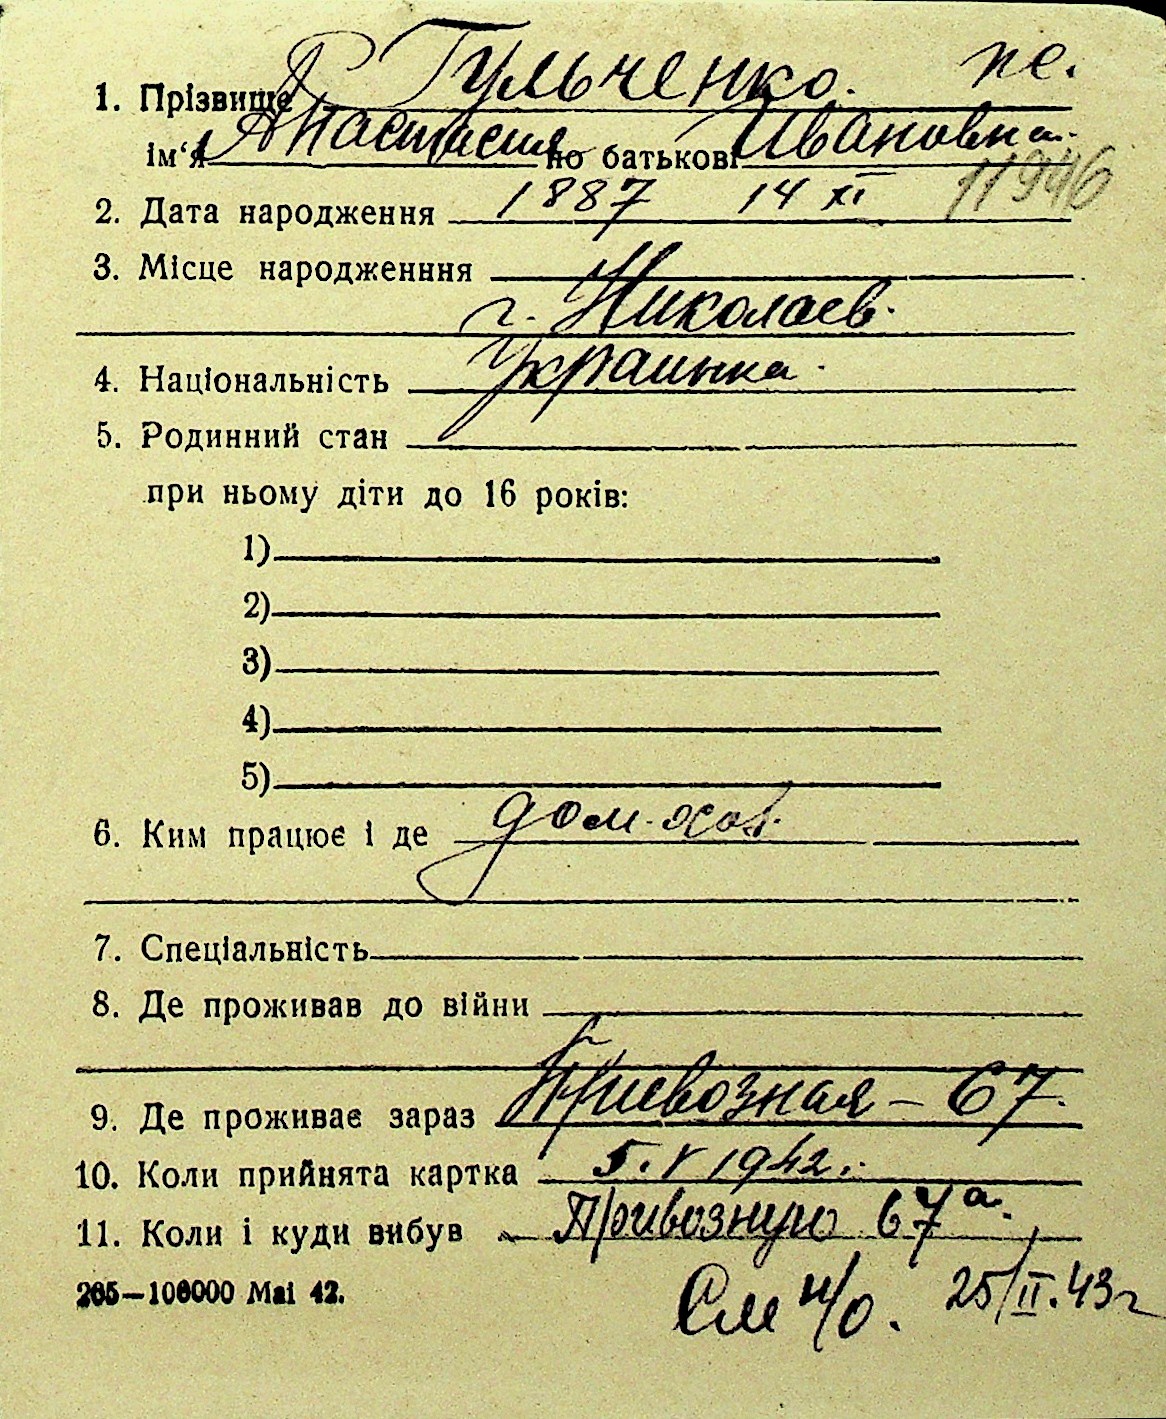 1. Прізвище Гульченко. пе.
ім‘я Анастасия по батькові Ивановна.
11946
2. Дата народження 1887 14 XI
3. Місце народженння
г. Николаев.
4. Національність Украинка.
5. Родинний стан
при ньому діти до 16 років:
1)
2)
3)
4)
5)
6. Ким працює і де дом. хоз.
7. Спеціальність
8. Де проживав до війни
9. Де проживає зараз Привозная – 67.
10. Коли прийнята картка 5. V 1942.
11. Коли і куди вибув Привозную 67а.
265—100000 Маі 42.
См н/о. 25/II.43г